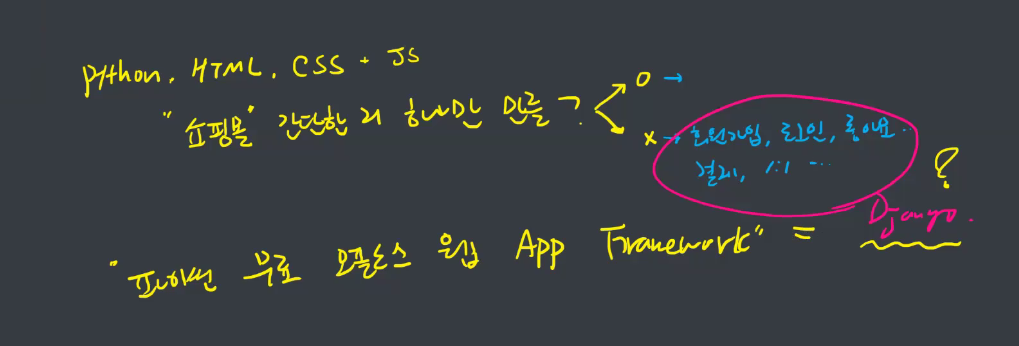 Python, HTML, CSS + JS
"쇼핑몰" 간단한 거 하나만 만들 ? O →
X → 회원가입, 로그인, 좋아요..
결제, 1:1 ...
?
Django.
"파이썬 무료 오픈소스 웹 App Framework" =